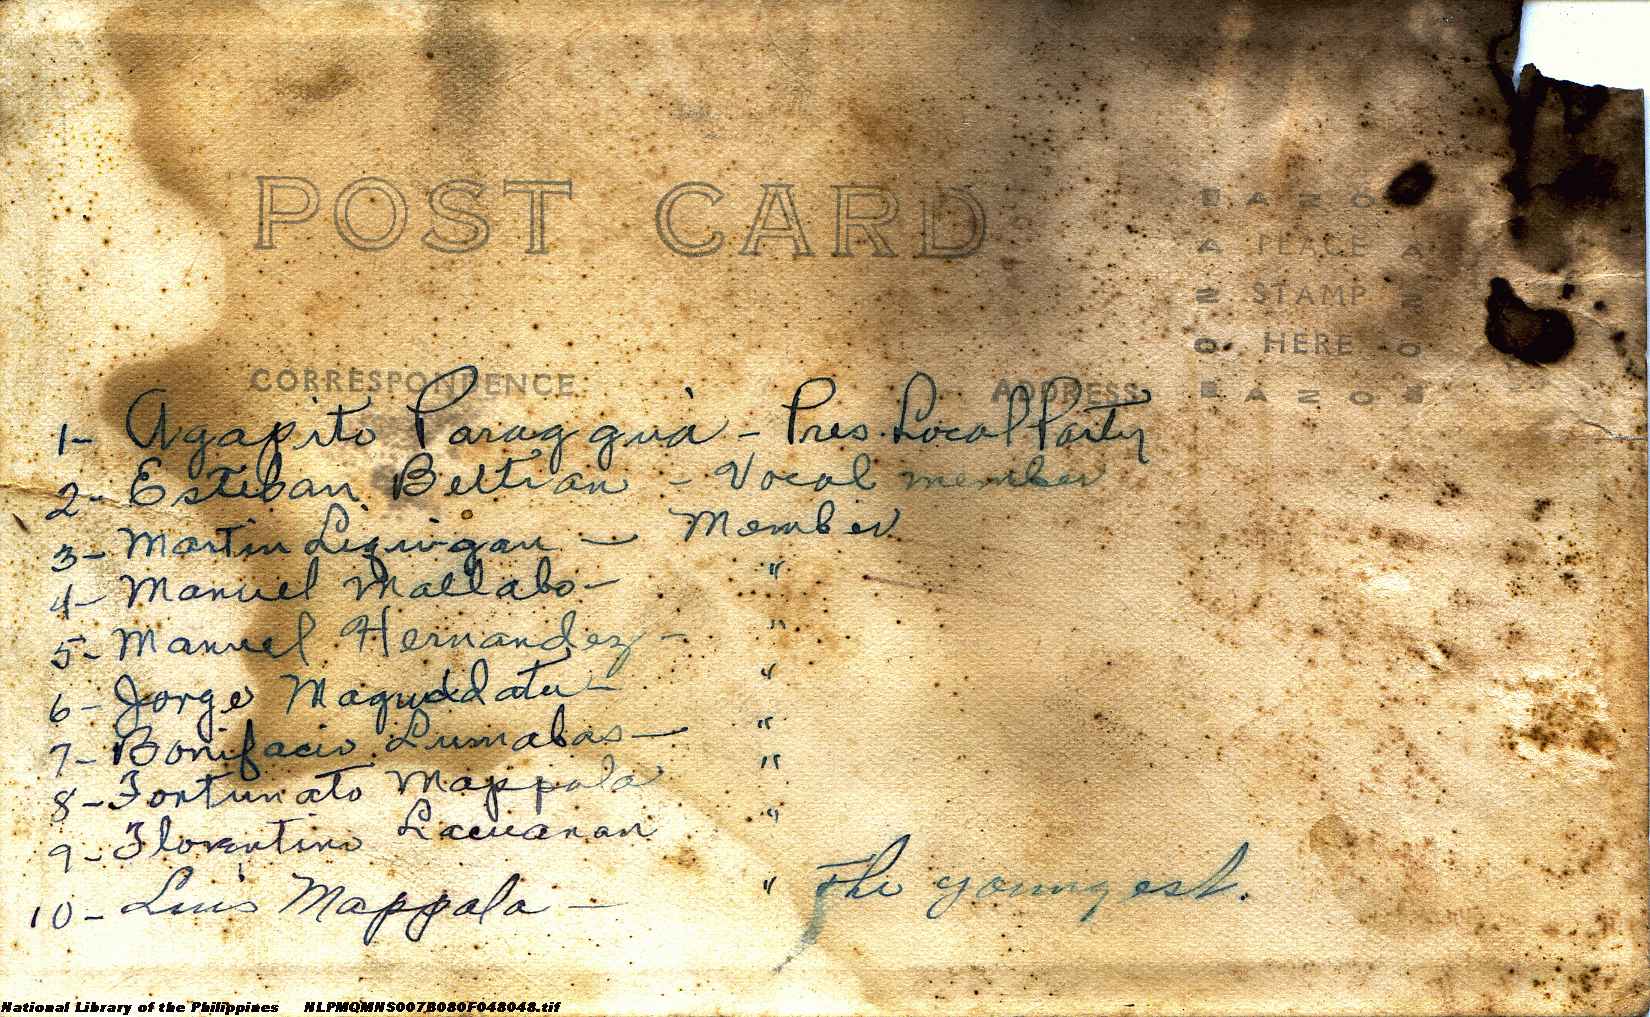 POST CARD
AZO
PLACE
STAMP
HERE
AZO
CORRESPONDENCE ADDRESS
1- Agapito Paraggua - Pres. Local Party
2- Esteban Beltran - Vocal member
3- Martin Ligigan - Member
4- Manuel Mallabo - "
5- Manuel Hernandez - "
6- Jorge Maguddatu - "
7- Bonifacio Lumabas - "
8- Fortunato Mappala "
9- Florentino "
10- Luis Mappala - " The youngest.
National Library of the Philippines NLPMQMNS007B080F048048.tif